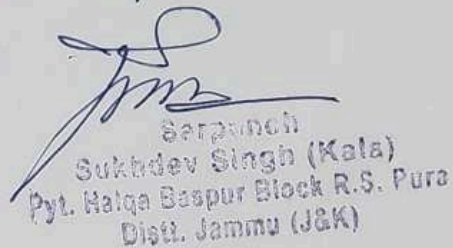 Sarpunch
Sukhdev Singh (Kala)
Pyt. Halqa Baspur Block R.S. Pura
Distt. Jammu (J&K)